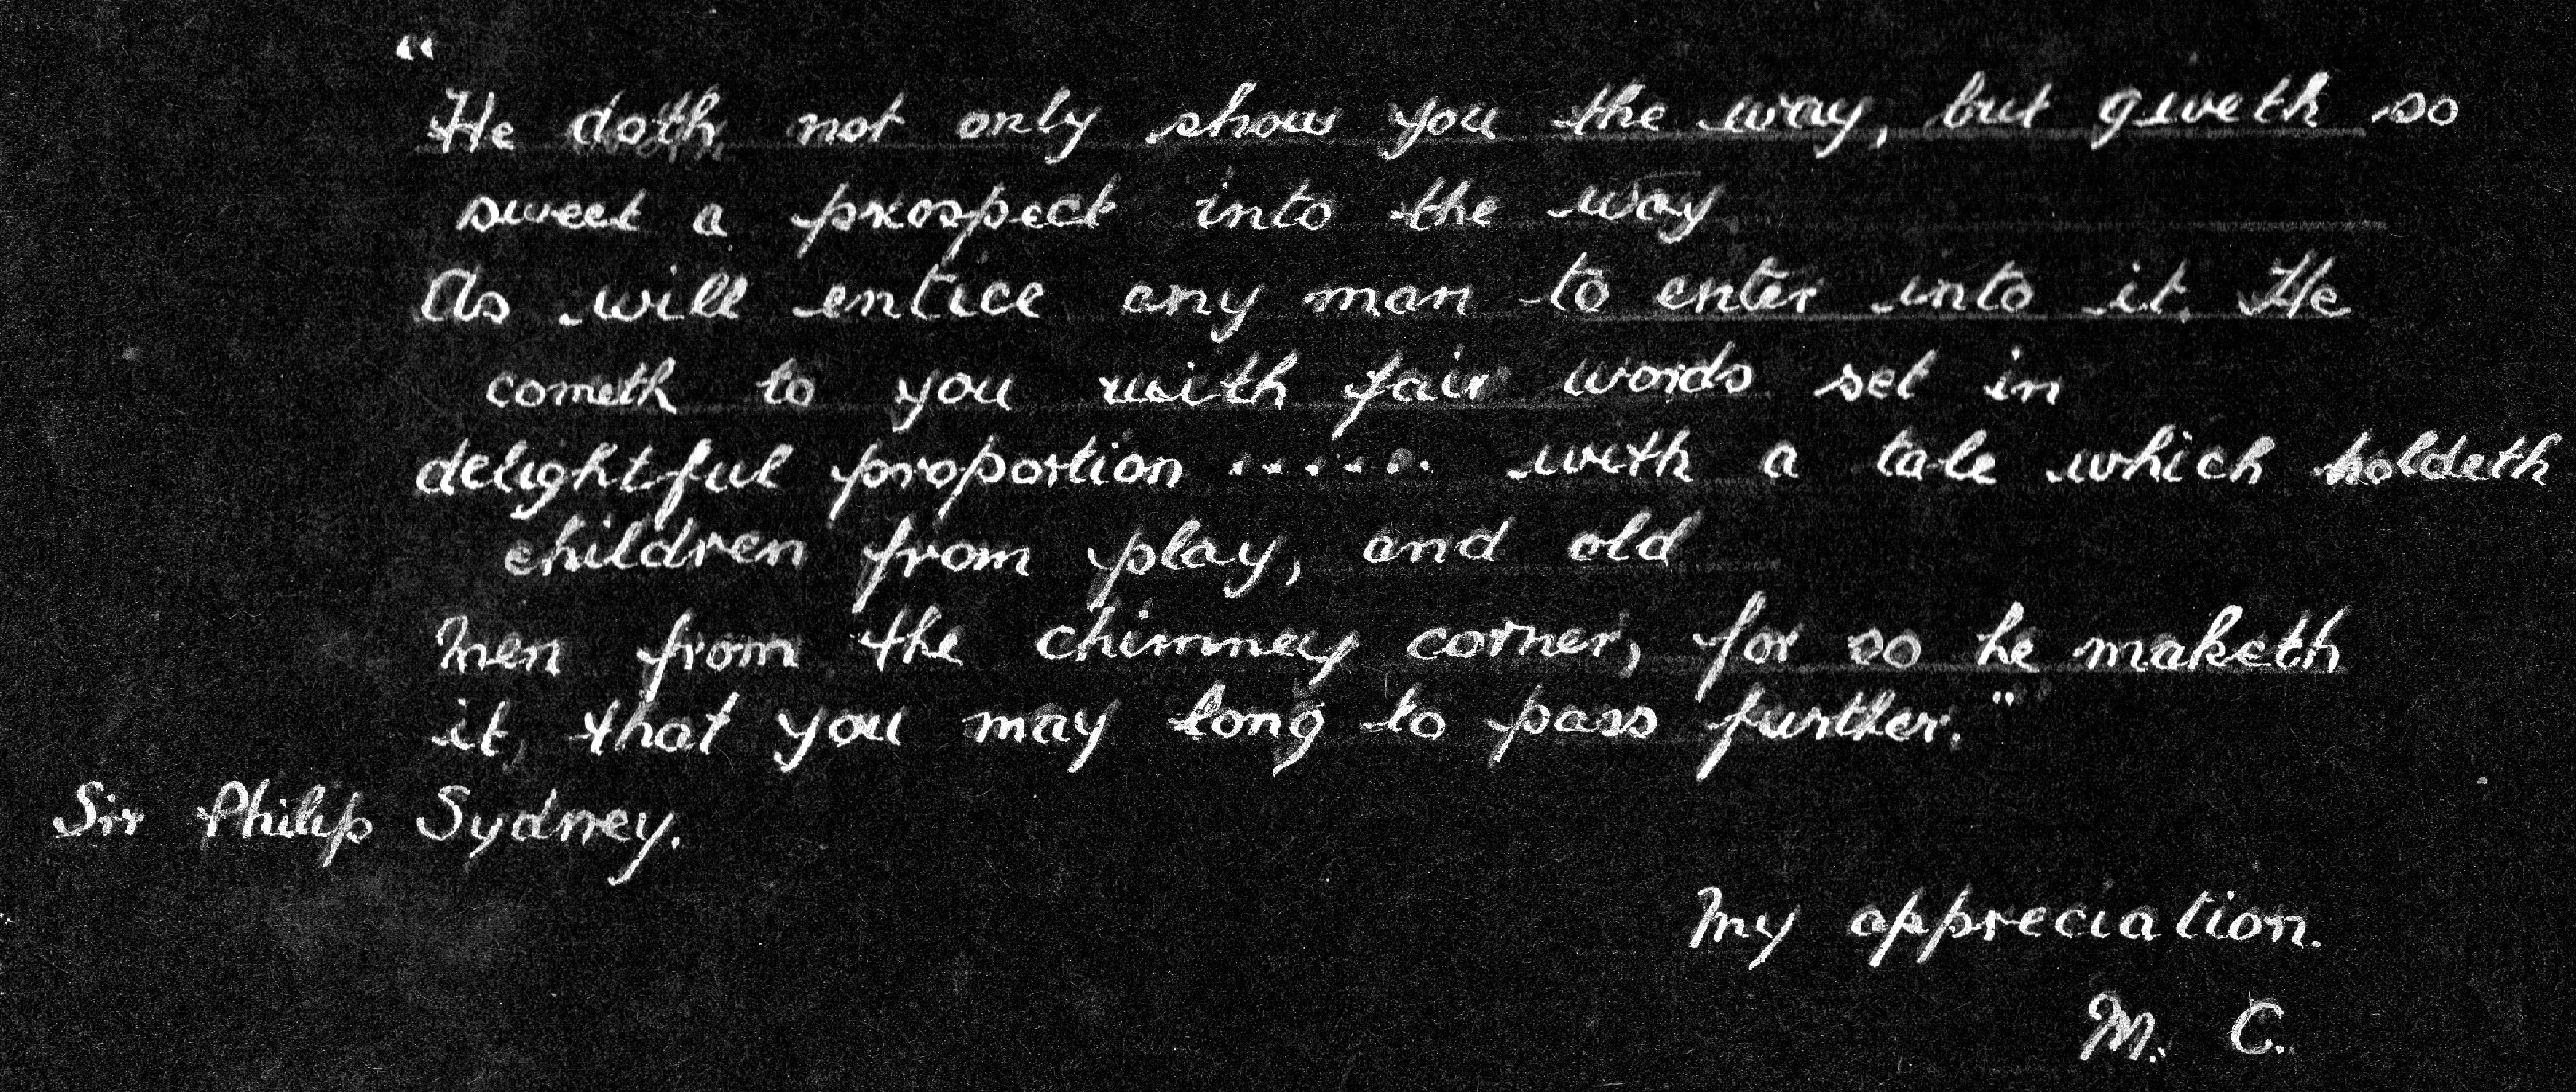 "
He doth not only show you the way, but giveth so
sweet a prospect into the way
As will entice any man to enter into it. He
cometh to you with fair words set in
delightful proportion ...... with a tale which holdeth
children from play, and old
Men from the chimney corner, for so he maketh
it, that you may long to pass further."
Sir Philip Sydney.
My appreciation.
M. C.